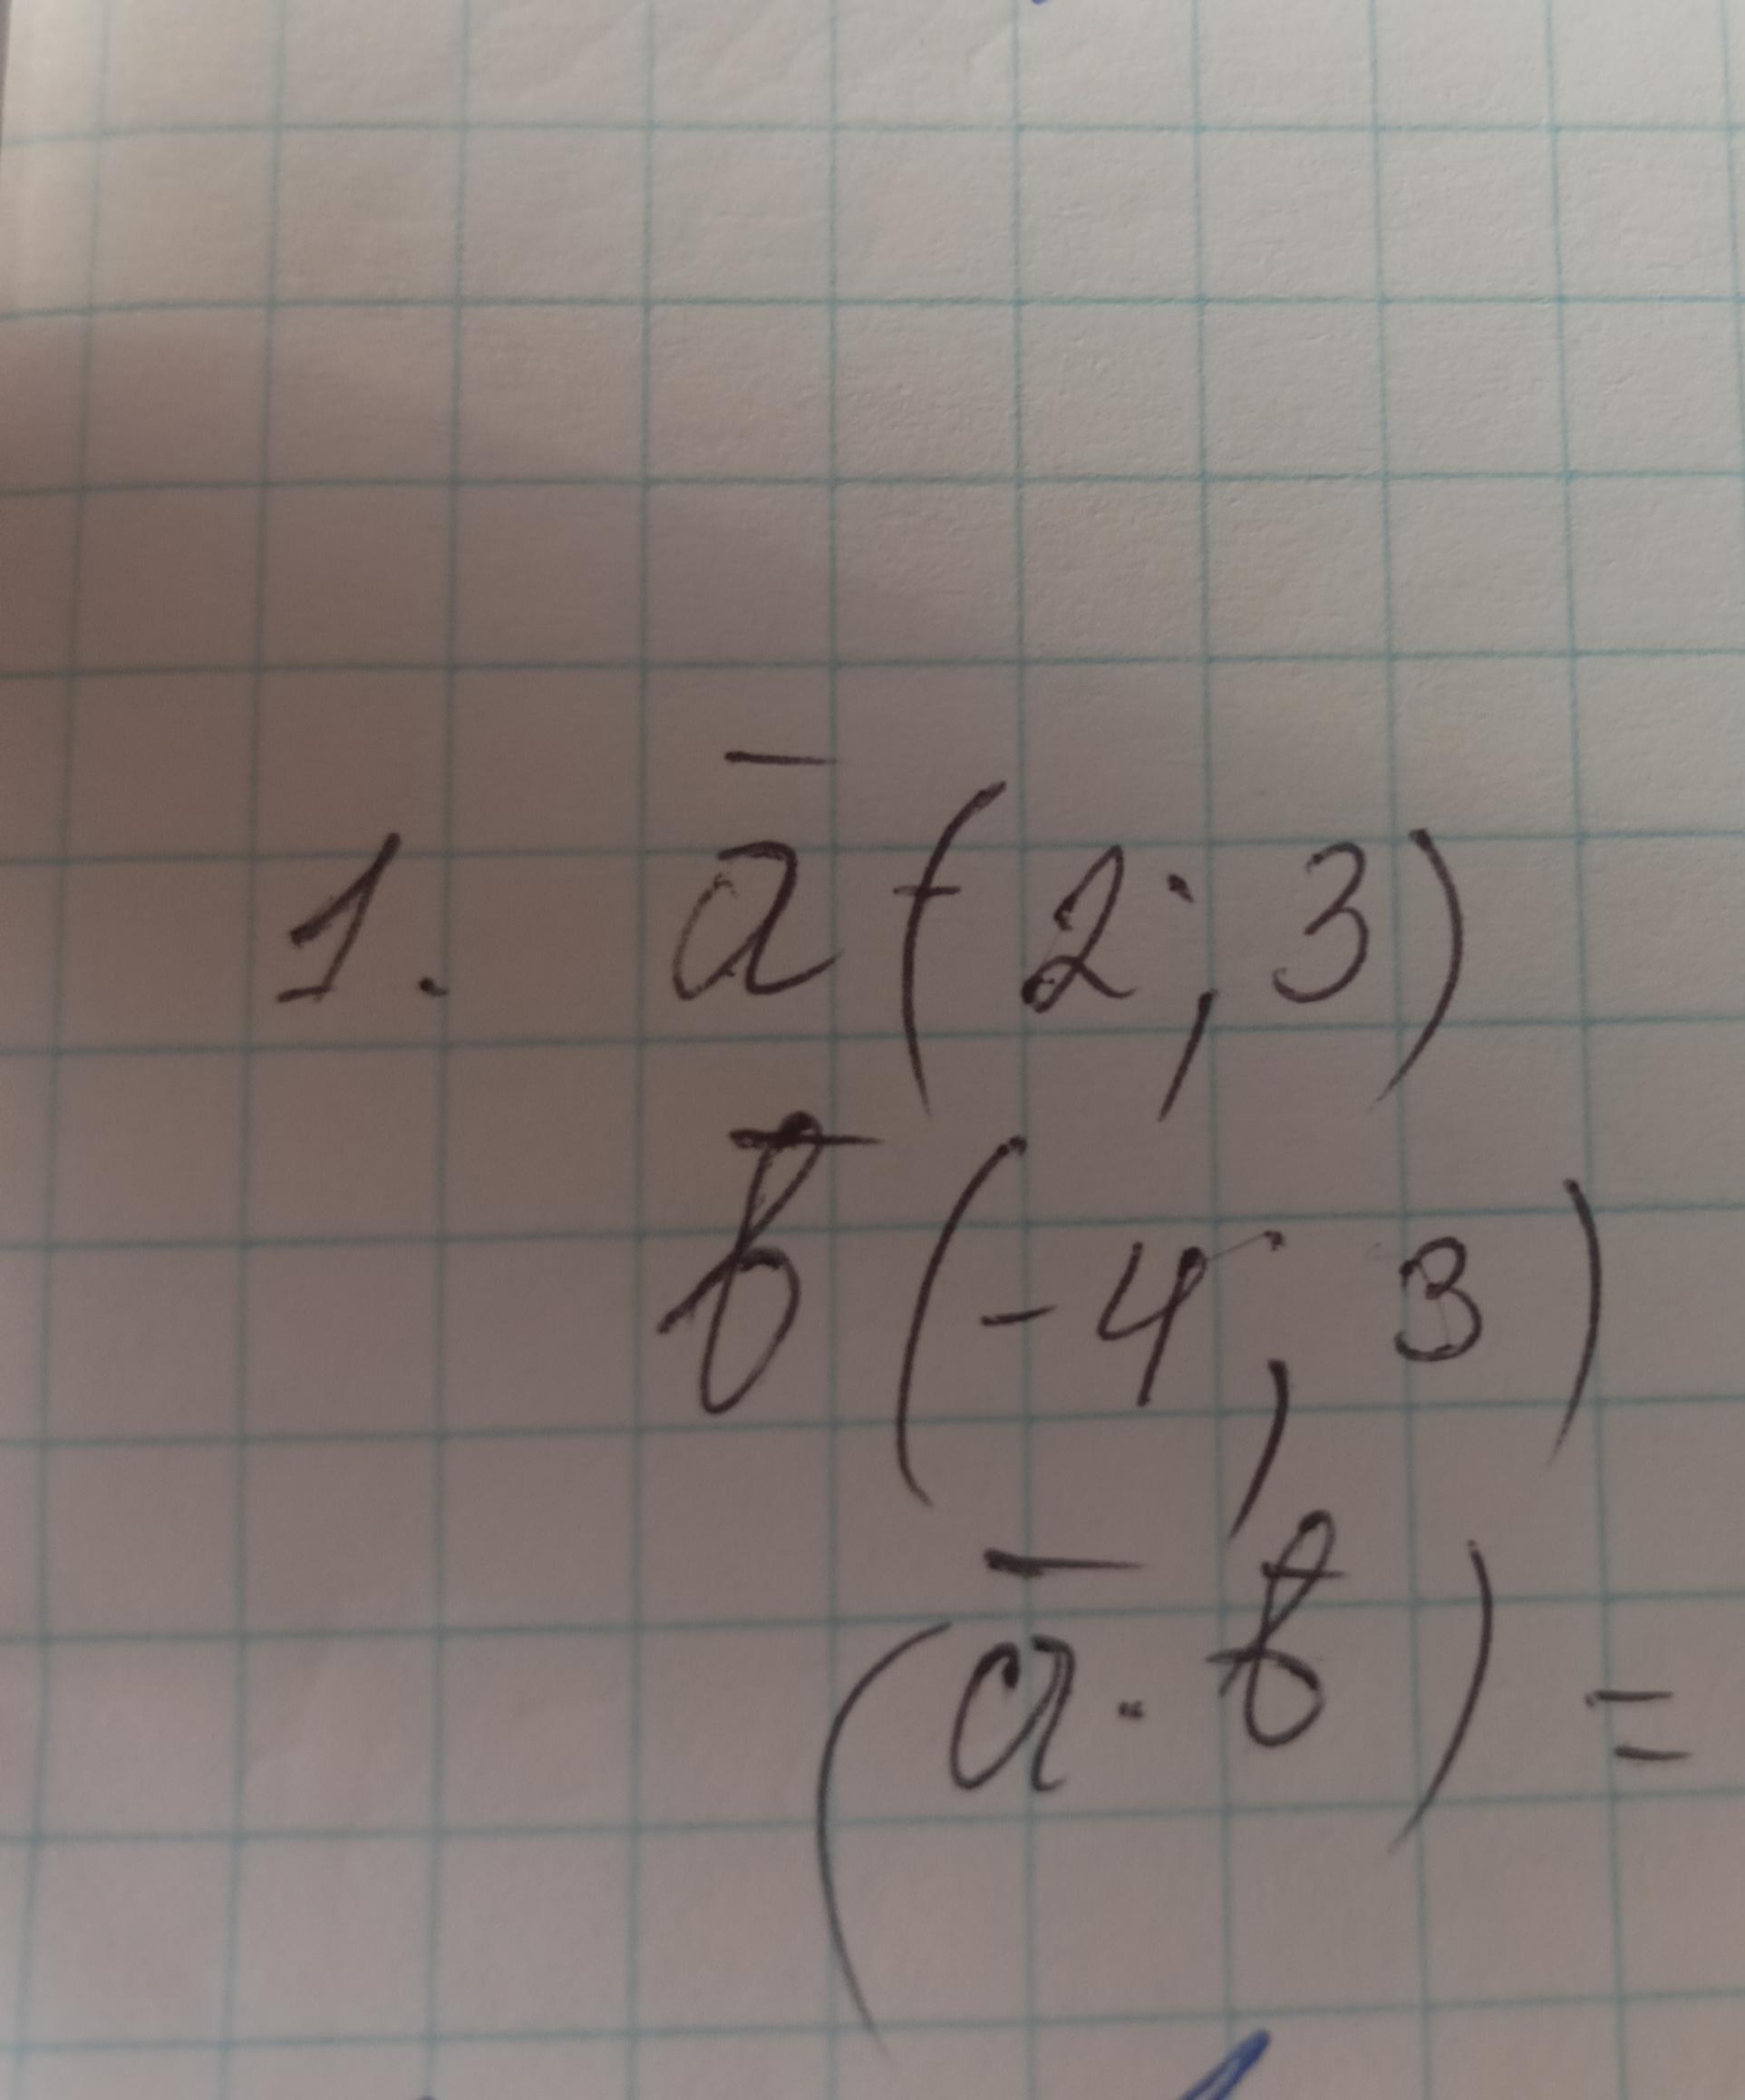 1. a̅ (-2; 3)
b̅ (-4; 3)
(a̅ · b̅) =